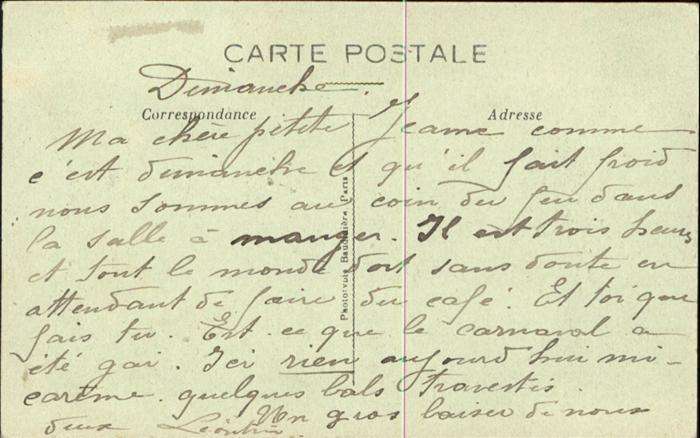 CARTE POSTALE
Dimanche.
Correspondance
Adresse
Ma chère petite Jeanne comme
c'est dimanche et qu'il fait froid
nous sommes au coin du feu dans
la salle à manger. Il est trois heures
et tout le monde dort sans doute en
attendant de faire du café. Et toi que
fais tu. Est-ce que le carnaval a
été gai. Ici rien aujourd'hui mi-
carême. quelques bals travestis.
Un gros baiser de nous
deux
Phototypie Baudinière Paris